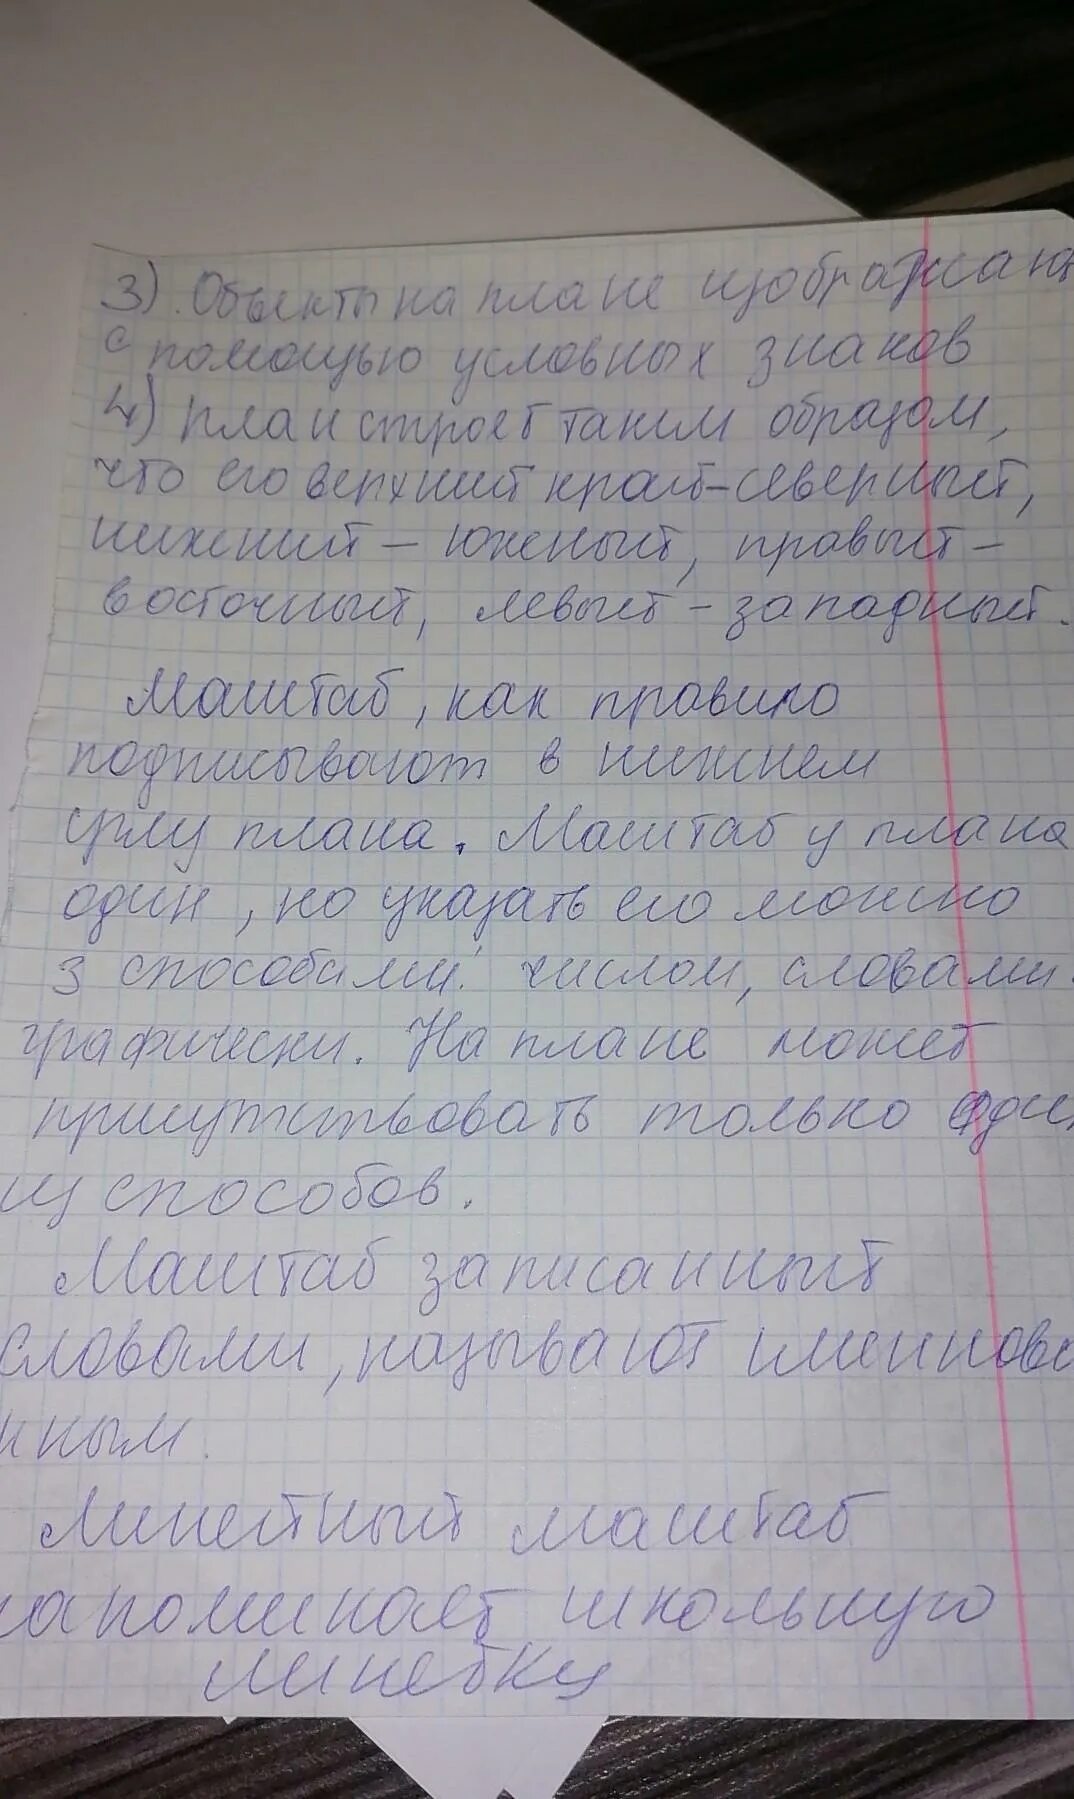 3) Объекты на плане изображают
с помощью условных знаков
4) план строет таким образом,
что его верхний край - северный,
нижний - южный, правый -
восточный, левый - западный.
Маштаб, как правило
подписывают в нижнем
углу плана. Маштаб у плана
один, но указать его можно
3 способами: числом, словами
графически. На плане может
присутствовать только один
из способов.
Маштаб записанный
словами, называют именнова
нным.
Линейный маштаб
напоминает школьную
линейку